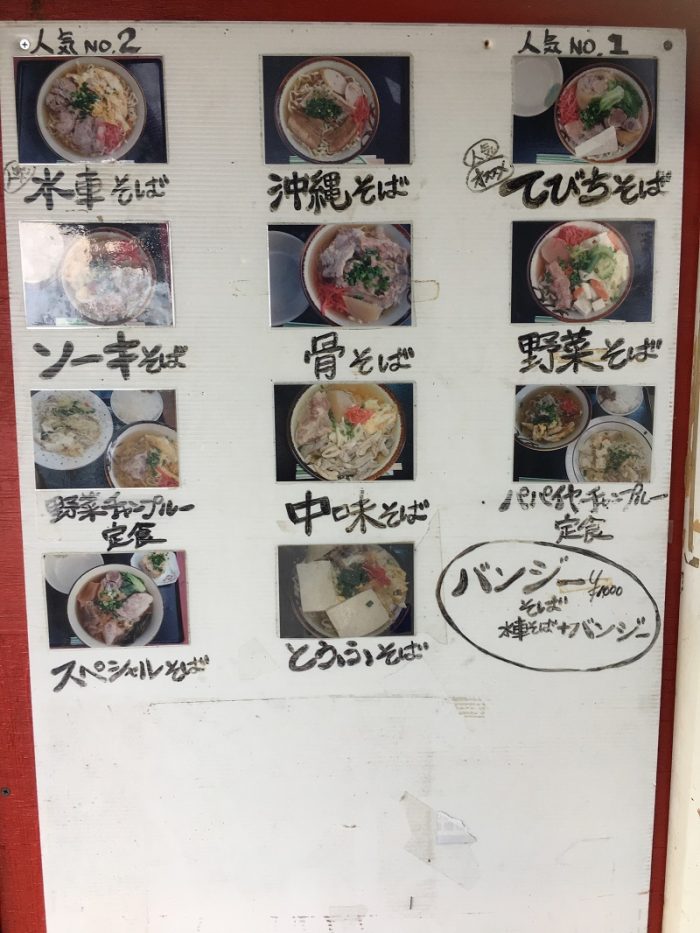 人気 NO.2
人気 NO.1
水車そば
沖縄そば
人気
オススメ
てびちそば
ソーキそば
骨そば
野菜そば
野菜チャンプルー
定食
中味そば
パパイヤーチャンプルー
定食
スペシャルそば
とうふそば
バンジー ¥1000
そば
水車そば+バンジー